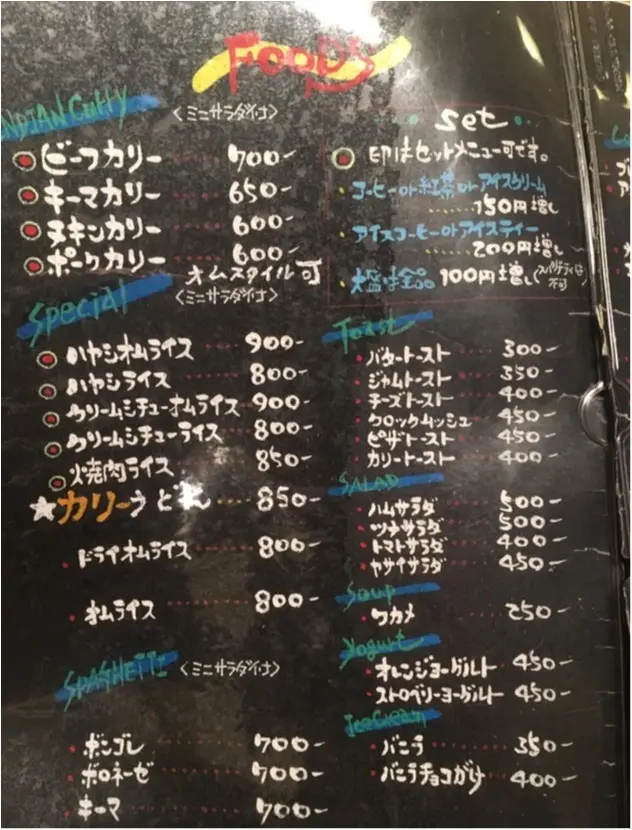 Foods
INDIAN Curry
〈ミニサラダ付〉
ビーフカリー 700-
キーマカリー 650-
チキンカリー 600-
ポークカリー 600-
オムスタイル可
Special
〈ミニサラダ付〉
ハヤシオムライス 900-
ハヤシライス 800-
クリームシチューオムライス 900-
クリームシチューライス 800-
焼肉ライス 850-
★カリーうどん 850-
ドライオムライス 800-
オムライス 800-
SPAGHETTI
〈ミニサラダ付〉
ボンゴレ 700-
ボロネーゼ 700-
キーマ 700-
Set
印はセットメニュー可です。
コーヒーor紅茶orアイスクリーム
150円増し
アイスコーヒーorアイスティー
200円増し
大盛は全品100円増し(スパゲティは不可)
Toast
バタートースト 300-
ジャムトースト 350-
チーズトースト 400-
クロックムッシュ 450-
ピザトースト 450-
カリートースト 400-
SALAD
ハムサラダ 500-
ツナサラダ 500-
トマトサラダ 400-
ヤサイサラダ 450-
Soup
ワカメ 250-
Yogurt
オレンジヨーグルト 450-
ストロベリーヨーグルト 450-
IceCream
バニラ 350-
バニラチョコがけ 400-